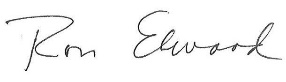 Ron Elwood